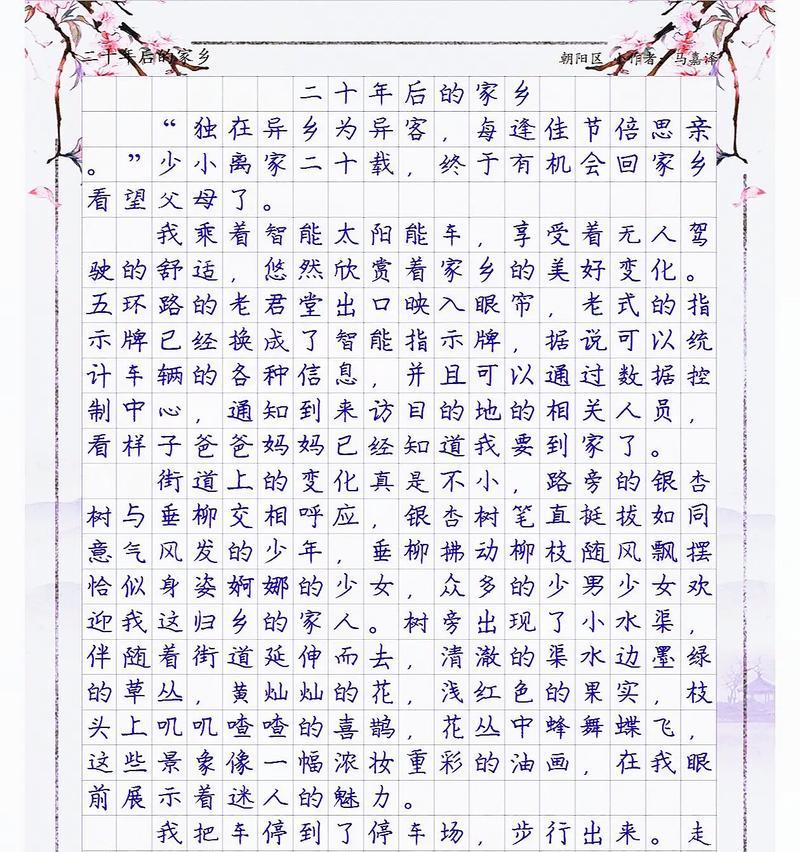 二十年后的家乡
朝阳区 小作者：马嘉泽
二十年后的家乡
“独在异乡为异客，每逢佳节倍思亲
。”少小离家二十载，终于有机会回家乡
看望父母了。
我乘着智能太阳能车，享受着无人驾
驶的舒适，悠然欣赏着家乡的美好变化。
五环路的老君堂出口映入眼帘，老式的指
示牌已经换成了智能指示牌，据说可以统
计车辆的各种信息，并且可以通过数据控
制中心，通知到来访目的地的相关人员，
看样子爸爸妈妈已经知道我要到家了。
街道上的变化真是不小，路旁的银杏
树与垂柳交相呼应，银杏树笔直挺拔如同
意气风发的少年，垂柳拂动柳枝随风飘摆
恰似身姿婀娜的少女，众多的少男少女欢
迎我这归乡的家人。树旁出现了小水渠，
伴随着街道延伸而去，清澈的渠水边墨绿
的草丛，黄灿灿的花，浅红色的果实，枝
头上叽叽喳喳的喜鹊，花丛中蜂舞蝶飞，
这些景象像一幅浓妆重彩的油画，在我眼
前展示着迷人的魅力。
我把车停到了停车场，步行出来。走